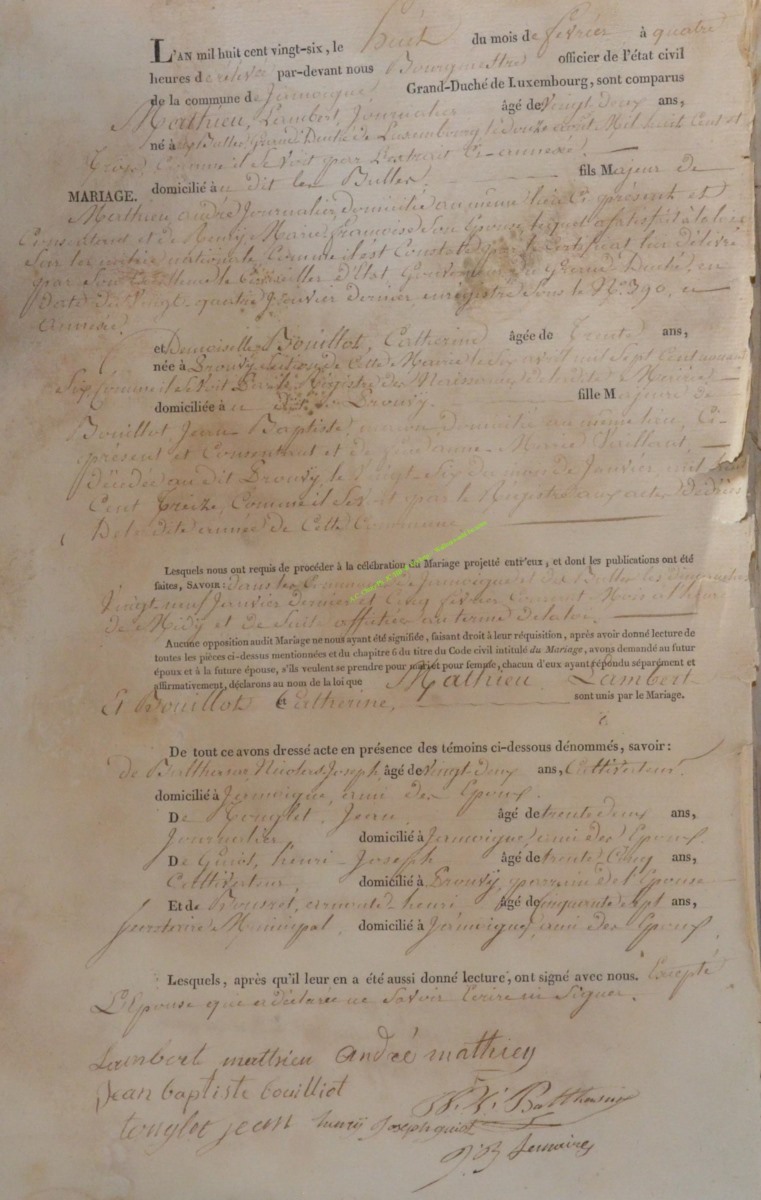 L'AN mil huit cent vingt-six, le huit du mois de février à quatre
heures de relevée par-devant nous Bourgmestre officier de l'état civil
de la commune de Jamoigne, Grand-Duché de Luxembourg, sont comparus
Mathieu, Lambert, Journalier âgé de vingt deux ans,
né à les Bulles Grand Duché de Luxembourg le douze août Mil huit Cent et
trois, Comme il se voit par l'extrait Ci-annexé.
domicilié à u dit les Bulles, fils Majeur de
MARIAGE.
Mathieu, andré Journalier, domicilié au même lieu, Ci présent et
Consentant et de Marie françoise Son Epouse, lequel a satisfait à la loi
Sur la milice nationale, Comme il est Constaté par le Certificat lui délivré
par Son Excellence le Conseiller d'État Gouverneur du Grand Duché, en
Date du Vingt-quatre Janvier dernier enregistré Sous le N° 390, ci
annexé.
et Demoiselle Bouillot, Catherine âgée de trente ans,
née à Prouvy, Section de Cette Mairie le avril mil Sept Cent quatre
Six Comme il se voit par le Régistre des Naissances de la dite Mairie
domiciliée à u dit Prouvy. fille Majeure de
Bouillot Jean-Baptiste, domicilié au même lieu, Ci-
présent et Consentant et de anne-Marie
Décédée au dit Prouvy, le Vingt-Six du mois de Janvier, mil huit
Cent treize, Comme il se voit par le Régistre aux actes de décès
De la dite année de Cette Commune.
Lesquels nous ont requis de procéder à la célébration du Mariage projetté entr'eux, et dont les publications ont été
faites, SAVOIR: dans les Communes de Jamoigne et des Bulles les dimanches
Vingt-neuf Janvier dernier et Cinq février Courant
de Midy et de Suite affichées au terme de la loi.
Aucune opposition audit Mariage ne nous ayant été signifiée, faisant droit à leur réquisition, après avoir donné lecture de
toutes les pièces ci-dessus mentionnées et du chapitre 6 du titre du Code civil intitulé du Mariage, avons demandé au futur
époux et à la future épouse, s'ils veulent se prendre pour mari et pour femme, chacun d'eux ayant répondu séparément et
affirmativement, déclarons au nom de la loi que Mathieu Lambert
Et Bouillot Catherine, sont unis par le Mariage.
De tout ce avons dressé acte en présence des témoins ci-dessous dénommés, savoir:
de Balthasar, Nicolas Joseph, âgé de vingt-deux ans, Cultivateur
domicilié à Jamoigne, ami des Epoux.
De Jean, âgé de trente deux ans,
Journalier, domicilié à Jamoigne, ami des Epoux.
De Guiot, henri-Joseph âgé de trente Cinq ans,
Cultivateur, domicilié à Prouvy, parrain de l'Epouse
Et de henri âgé de Cinquante Sept ans,
Secrétaire Municipal, domicilié à Jamoigne, ami des Epoux
Lesquels, après qu'il leur en a été aussi donné lecture, ont signé avec nous. Excepté
L'Epouse que a déclarée ne Savoir Ecrire ni Signer.
Lambert mathieu andré mathiey
Jean baptiste bouilliot
jean henrÿ Joseph guiot